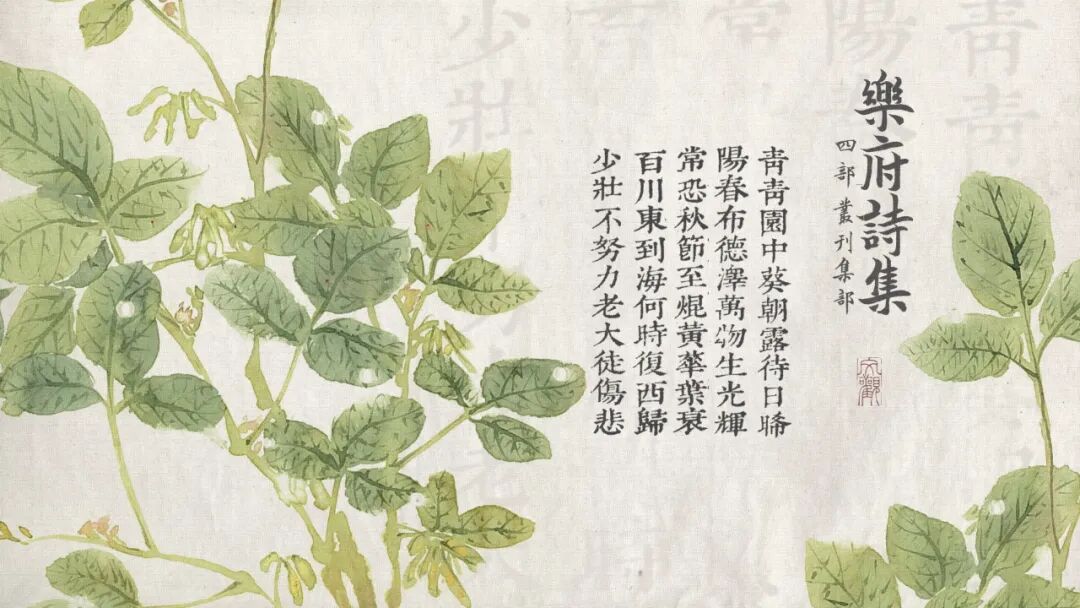 樂府詩集
四部叢刊集部
大觀
青青園中葵朝露待日晞
陽春布德澤萬物生光輝
常恐秋節至焜黃華葉衰
百川東到海何時復西歸
少壯不努力老大徒傷悲